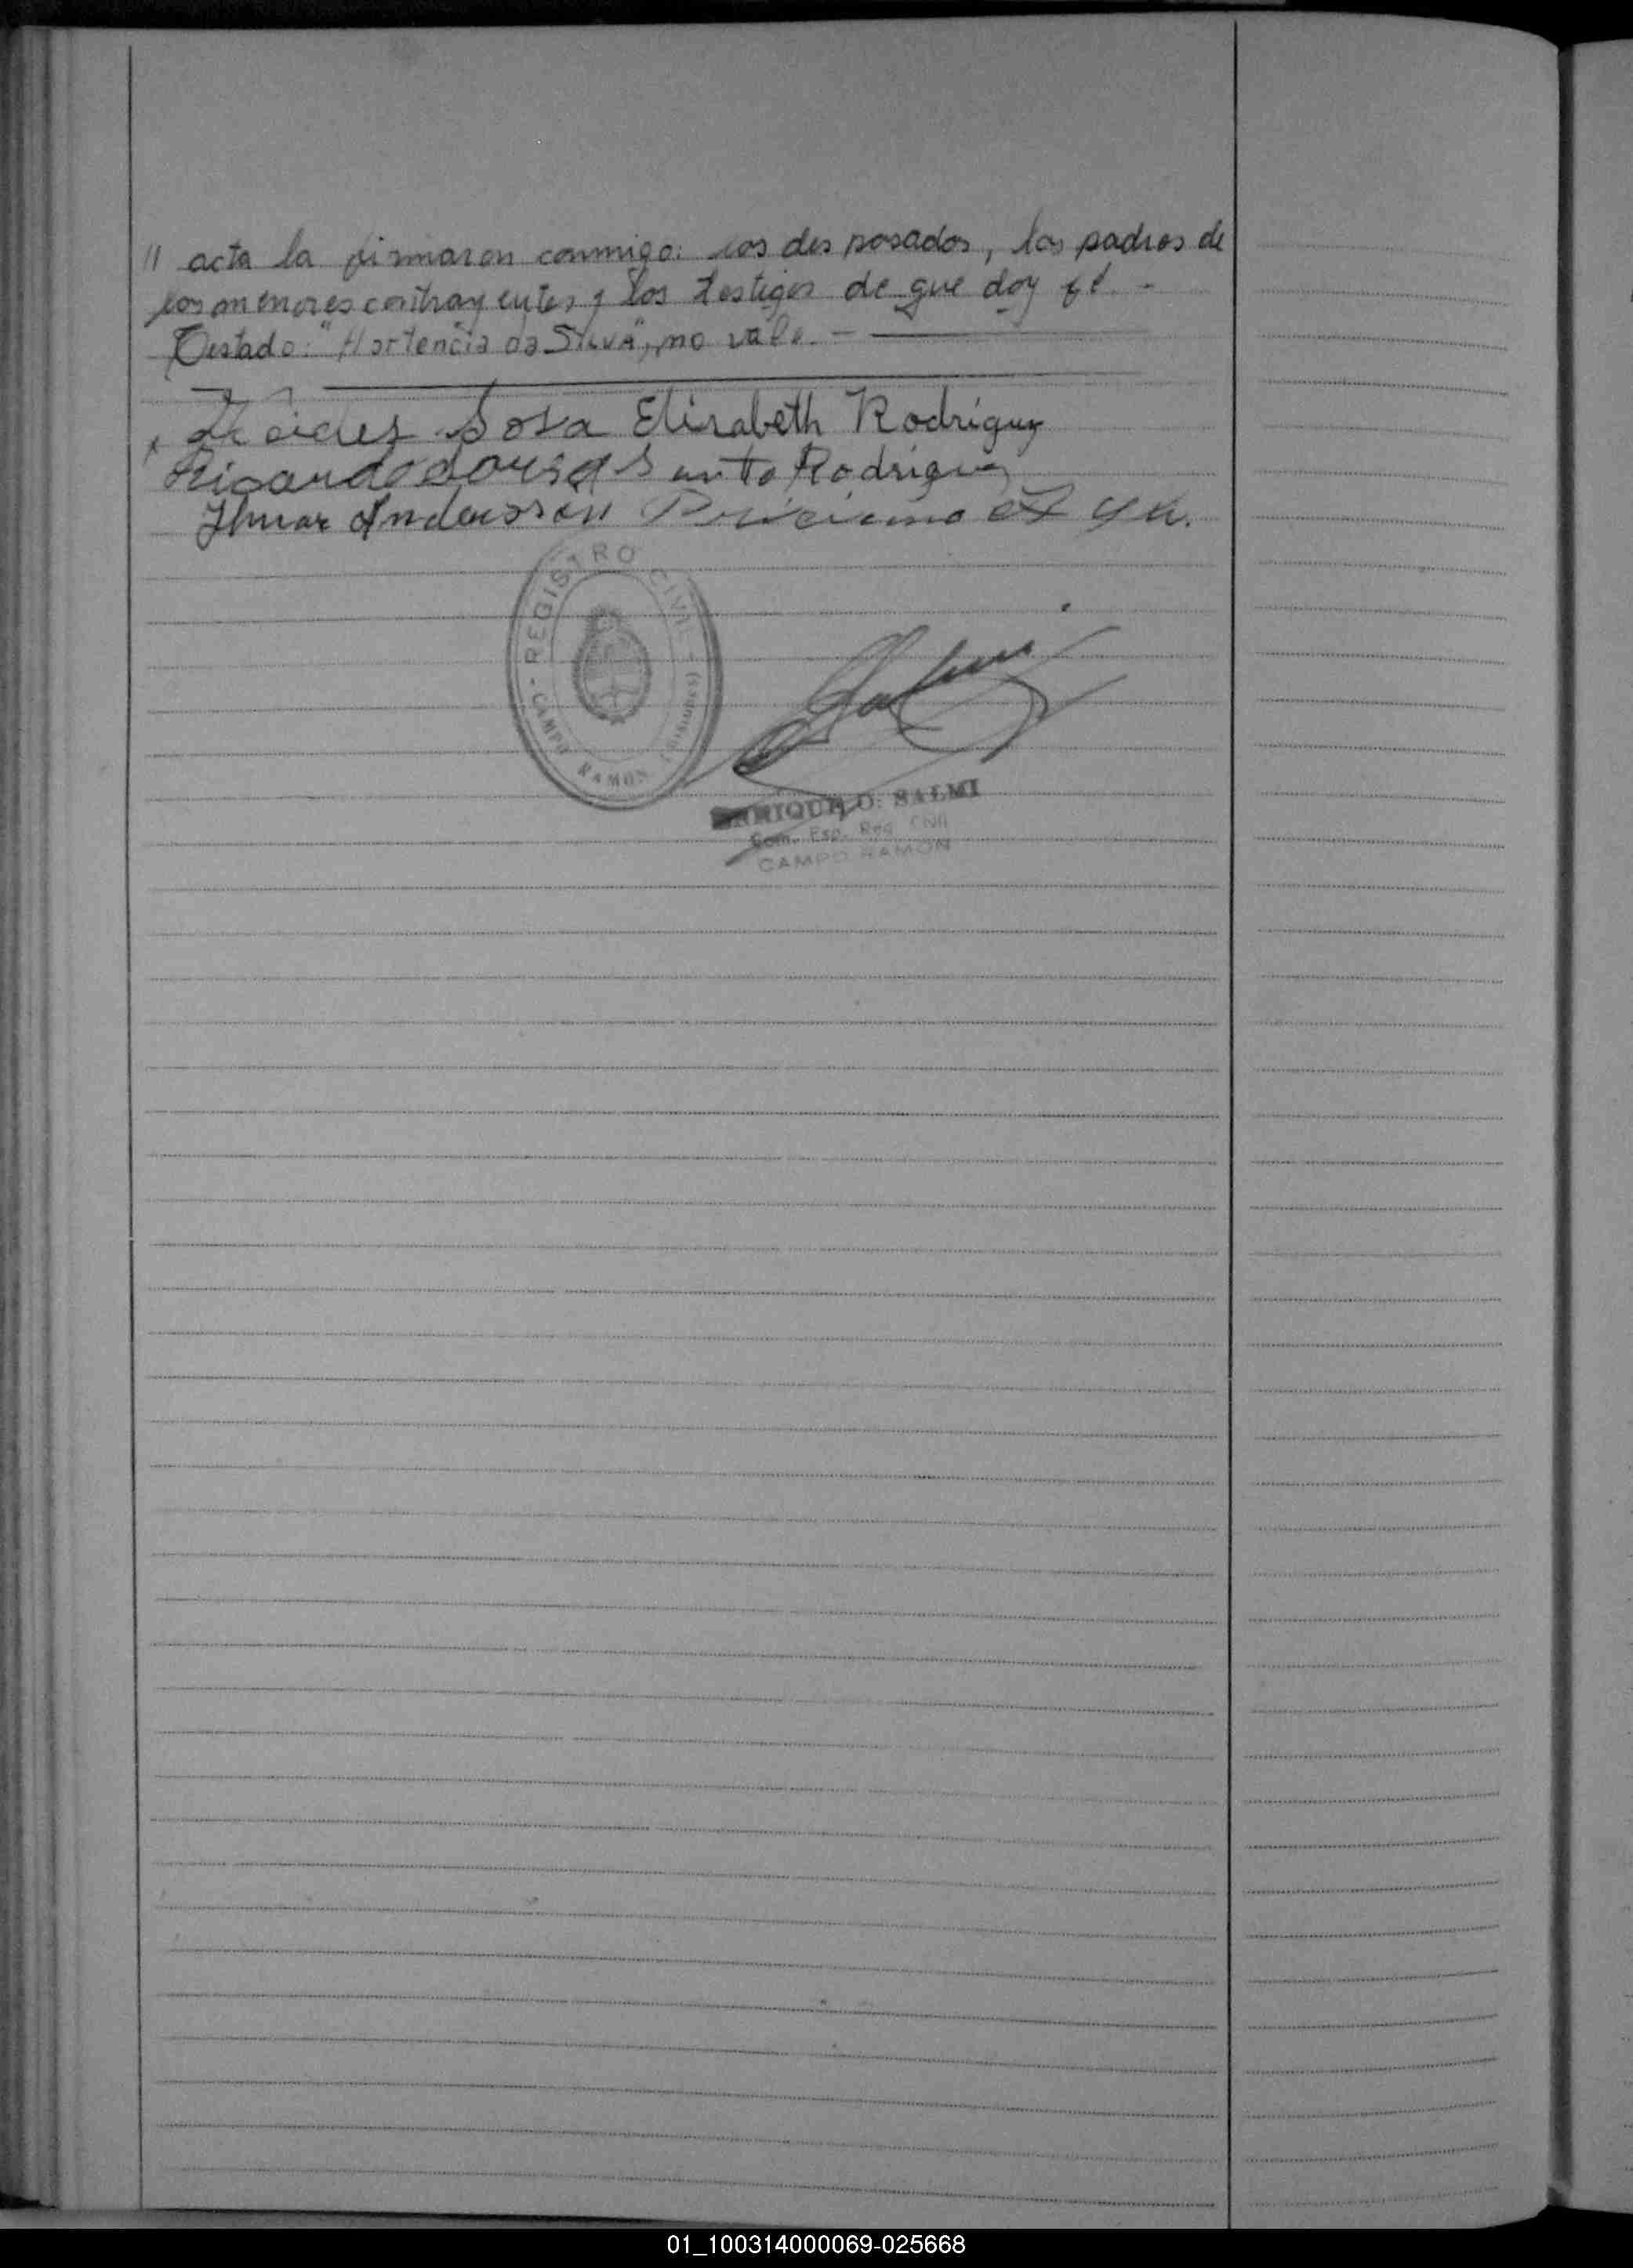 // acta la firmaron conmigo: los desposados, los padres de
los menores contrayentes y los testigos de que doy fé. -
Testado: "Hortencia da Silva", no vale. -
Sosa Elizabeth Rodriguez
Ricardo Rodriguez
Andersson
- REGISTRO CIVIL -
CAMPO RAMON (Misiones)
ENRIQUE O. SALMI
Com. Esp. Reg. Civil
CAMPO RAMON
01_100314000069-025668